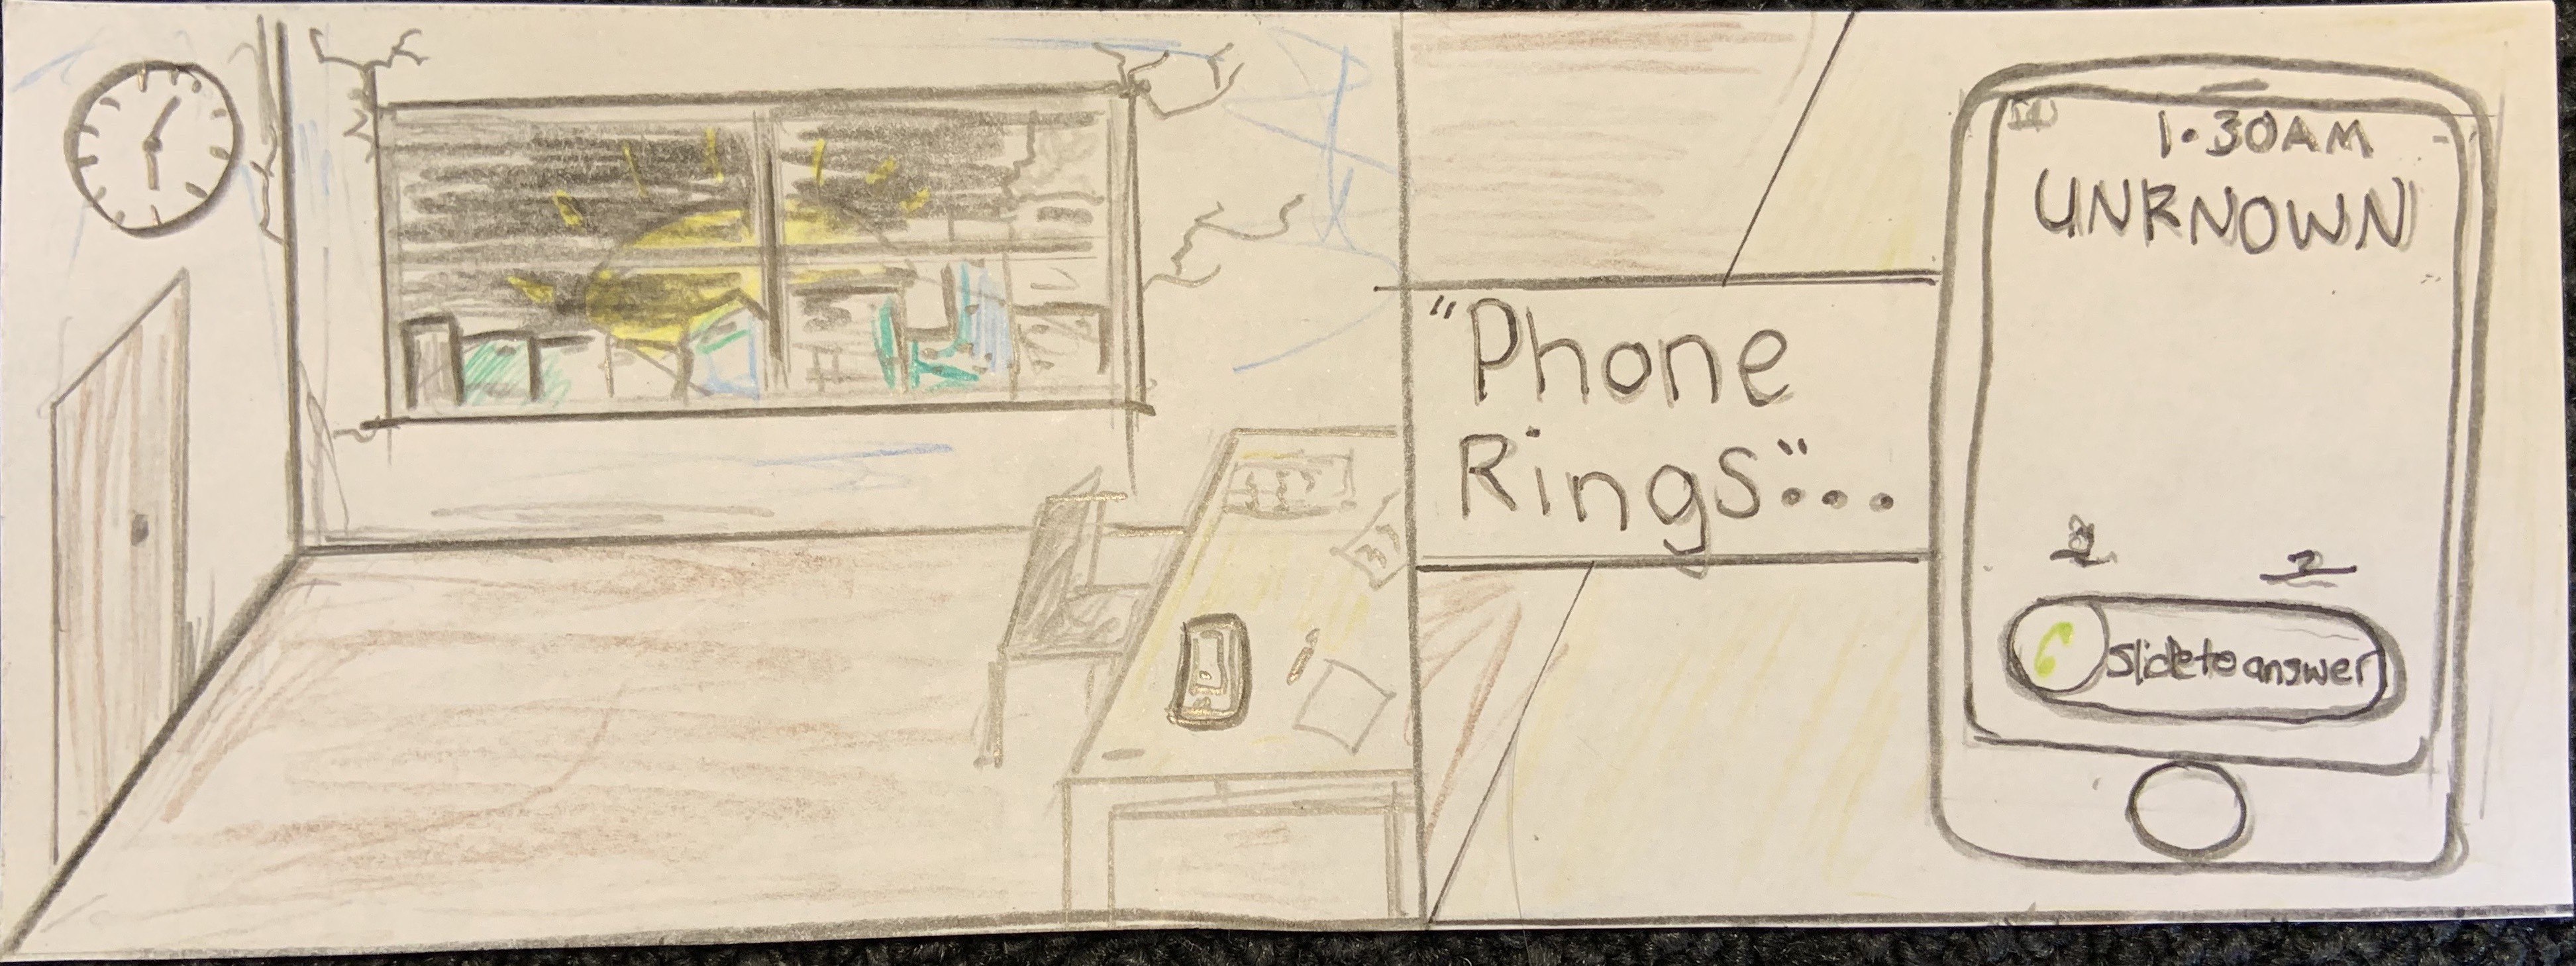 "Phone
Rings"...
1.30AM
UNKNOWN
slide to answer